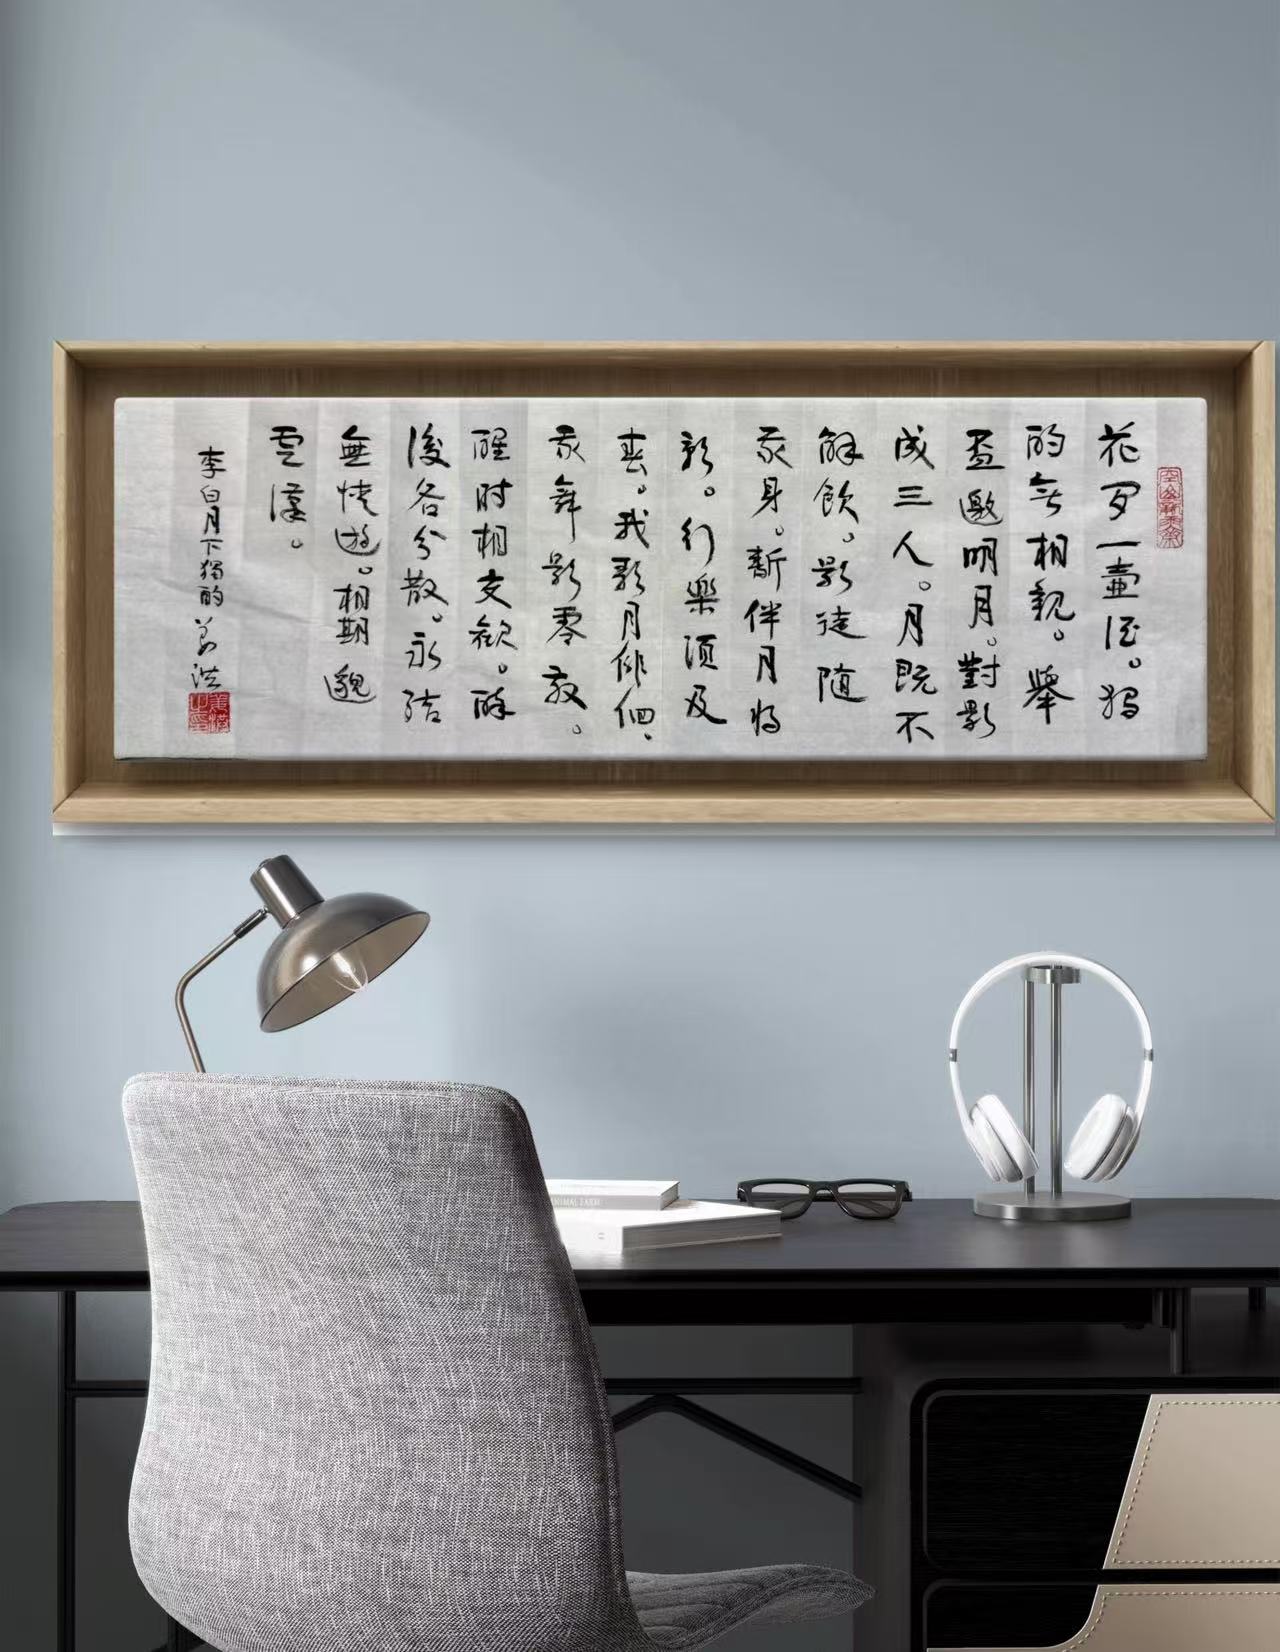 花間一壺酒。獨
酌無相親。舉
盃邀明月。對影
成三人。月既不
解飲。影徒隨
我身。暫伴月將
影。行樂須及
春。我歌月俳佪、
我舞影零亂。
醒时相交歡。醉
後各分散。永結
無情遊。相期邈
雲漢。
李白月下獨酌 姜洪
ANIMAL FARM